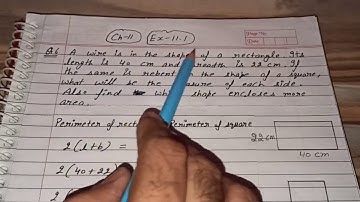 Ch-11 Ex-11.1
Page No.
Date
Q.6 A wire is in the shape of a rectangle. Its
length is 40 cm and breadth is 22 cm. If
the same is rebent in the shape of a square,
what will be the measure of each side.
Also find which shape encloses more
area.
Perimeter of rectangle Perimeter of square
2(l+b) =
22 cm
2(40+22)
40 cm